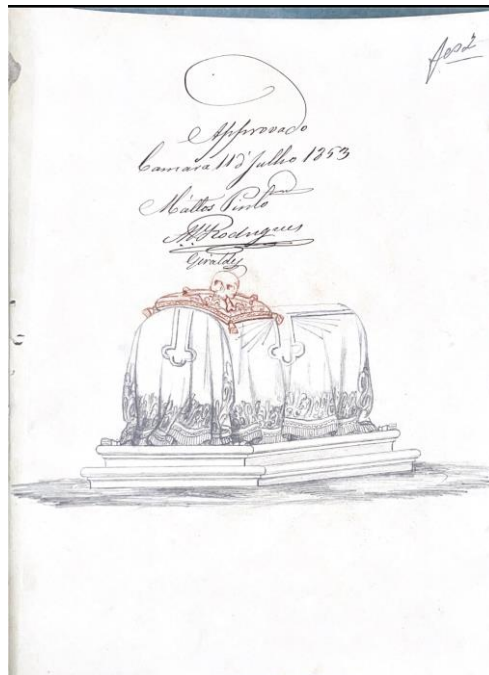 Approvado
Camara 11 d' Julho 1853
Mattos Pinto
Rodrigues
Giraldes